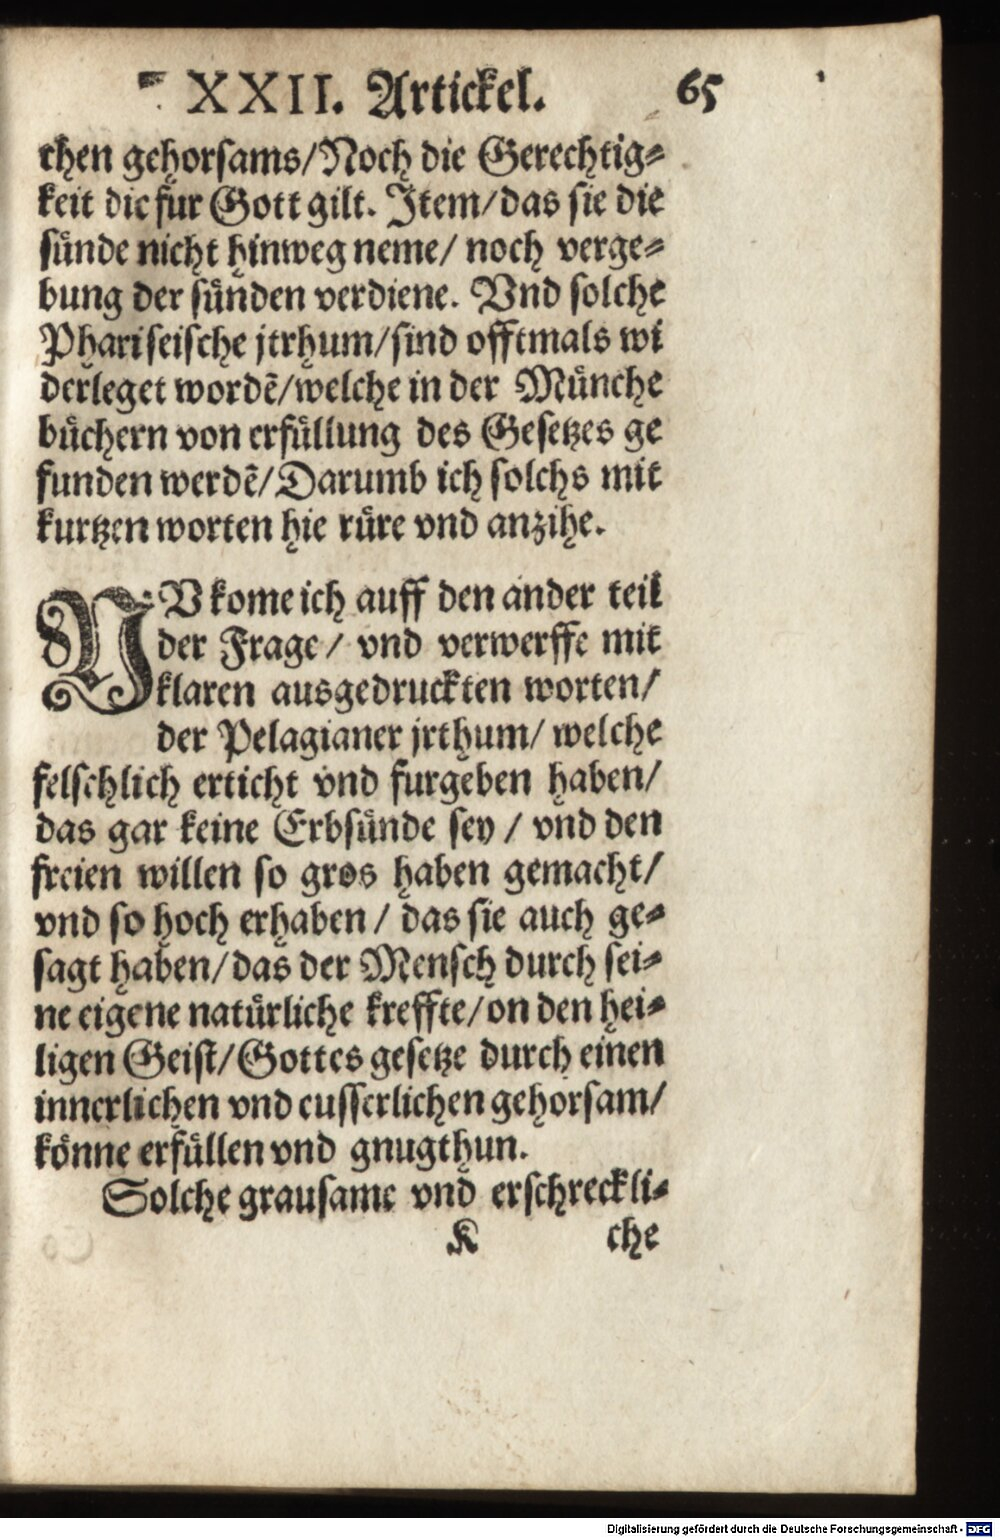 XXII. Artickel. 65
chen gehorsams/Noch die Gerechtig⸗
keit die fur Gott gilt. Item/das sie die
sünde nicht hinweg neme/ noch verge⸗
bung der sünden verdiene. Vnd solche
Phariseische jtrhum/sind offtmals wi
derleget wordẽ/welche in der Münche
büchern von erfüllung des Gesetzes ge
funden werdẽ/Darumb ich solchs mit
kurtzen worten hie rüre vnd anzihe.
NV kome ich auff den ander teil
der Frage/ vnd verwerffe mit
klaren ausgedruckten worten/
der Pelagianer jrthum/ welche
felschlich erticht vnd furgeben haben/
das gar keine Erbsünde sey / vnd den
freien willen so gros haben gemacht/
vnd so hoch erhaben/ das sie auch ge⸗
sagt haben/das der Mensch durch sei⸗
ne eigene natürliche kreffte/on den hei⸗
ligen Geist/Gottes gesetze durch einen
innerlichen vnd eusserlichen gehorsam/
könne erfüllen vnd gnugthun.
Solche grausame vnd erschreckli⸗
K che
Digitalisierung gefördert durch die Deutsche Forschungsgemeinschaft - DFG